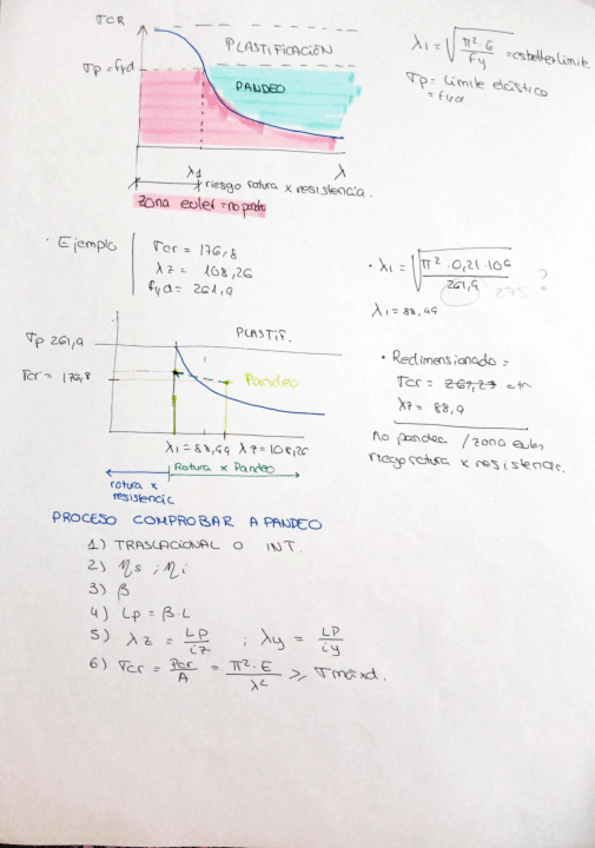 σCR
PLASTIFICACIÓN
σp = fyd
PANDEO
λ1
λ
riesgo rotura x resistencia.
Zona euler = no pandeo
λ1 = √ π²·E / fy = esbeltez limite
σp = Límite elástico
= fyd
· Ejemplo
σcr = 176,8
λz = 108,26
fyd = 261,9
· λ1 = √ π²·0,21·106 / 261,9
275 ?
λ1 = 88,99
σp 261,9
PLASTIF.
σcr = 176,8
Pandeo
λ1 = 88,99 λz = 108,26
Rotura x Pandeo
rotura x
resistencia
· Redimensionado =
σcr = 267,27
λz = 88,9
no pandea / zona euler
riesgo rotura x resistencia.
PROCESO COMPROBAR A PANDEO
1) TRASLACIONAL O INT.
2) ηs ; ηi
3) β
4) Lp = β·L
5) λz = LP / iz ; λy = LP / iy
6) σcr = Pcr / A = π²·E / λ² ≥ σmáxd.